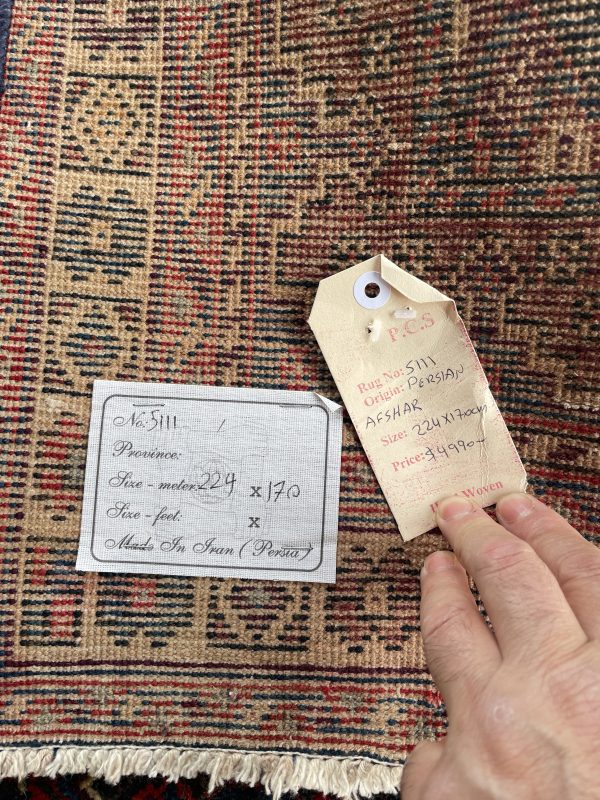 No: 5111 /
Province:
Size - meter: 224 x 170
Size - feet: x
Made In Iran (Persia)
P.C.S
Rug Na: 5111
Origin: PERSIAN
AFSHAR
Size: 224X170cm
Price: $4990-
Woven